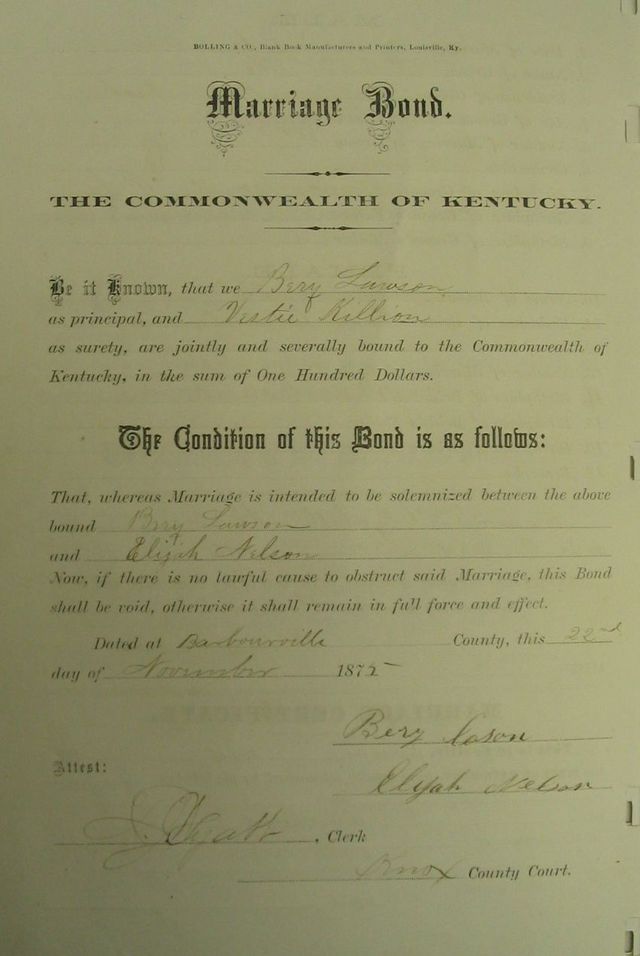 BOLLING & CO., Blank Book Manufacturers and Printers, Louisville, Ky.
Marriage Bond.
THE COMMONWEALTH OF KENTUCKY.
Be it Known, that we Bery Lawson
as principal, and Vestie Killion
as surety, are jointly and severally bound to the Commonwealth of
Kentucky, in the sum of One Hundred Dollars.
The Condition of this Bond is as follows:
That, whereas Marriage is intended to be solemnized between the above
bound Bery Lawson
and Elijah Nelson
Now, if there is no lawful cause to obstruct said Marriage, this Bond
shall be void, otherwise it shall remain in full force and effect.
Dated at Barbourville County, this 22nd
day of November 1875
Bery Lason
Attest:
Elijah Nelson
, Clerk
Knox County Court.